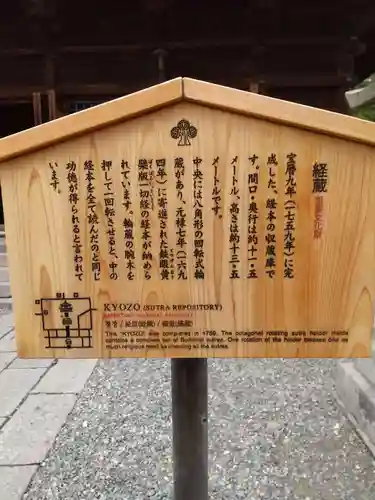 経蔵
宝暦九年（一七五九年）に完
成した、経本の収蔵庫で
す。間口・奥行は約十一・五
メートル、高さは約十三・五
メートルです。
中央には八角形の回転式輪
蔵があり、元禄七年（一六九
四年）に寄進された鉄眼黄
檗版一切経の経本が納めら
れています。輪蔵の腕木を
押して一回転させると、中の
経本を全て読んだのと同じ
功徳が得られると言われて
います。
KYOZO (SUTRA REPOSITORY)
The "KYOZO" was completed in 1759. The octagonal rotating sutra holder inside
contains a complete set of Buddhist sutras. One rotation of the holder bestows as
much religious merit as chanting all the sutras.